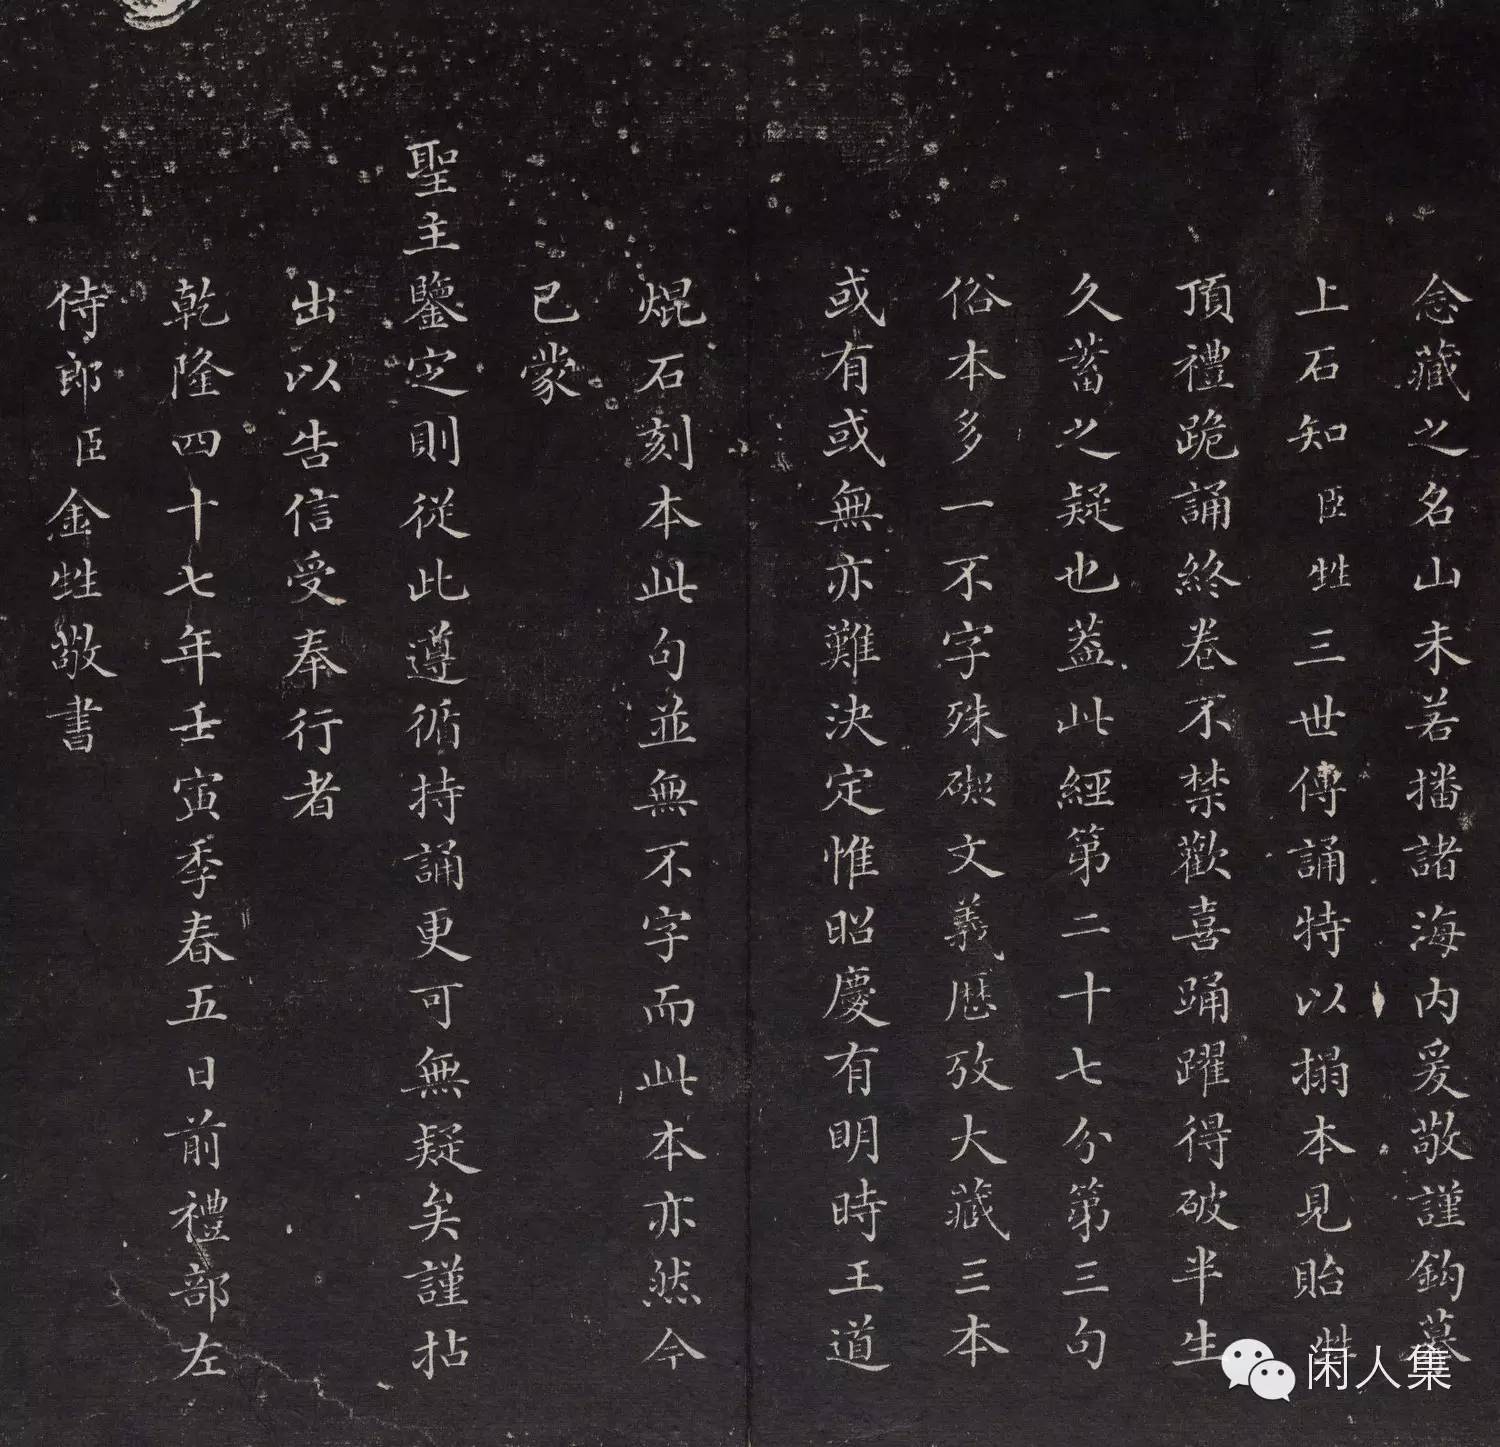 念藏之名山未若播諸海内爰敬謹鈎摹
上石知臣甡三世傳誦特以搨本見貽甡
頂禮跪誦終卷不禁歡喜踊躍得破半生
久蓄之疑也葢此經第二十七分第三句
俗本多一不字殊礙文義歴攷大藏三本
或有或無亦難決定惟昭慶有明時王道
焜石刻本此句並無不字而此本亦然今
已蒙
聖主鑒定則從此遵循持誦更可無疑矣謹拈
出以告信受奉行者
乾隆四十七年壬寅季春五日前禮部左
侍郎臣金甡敬書
闲人集